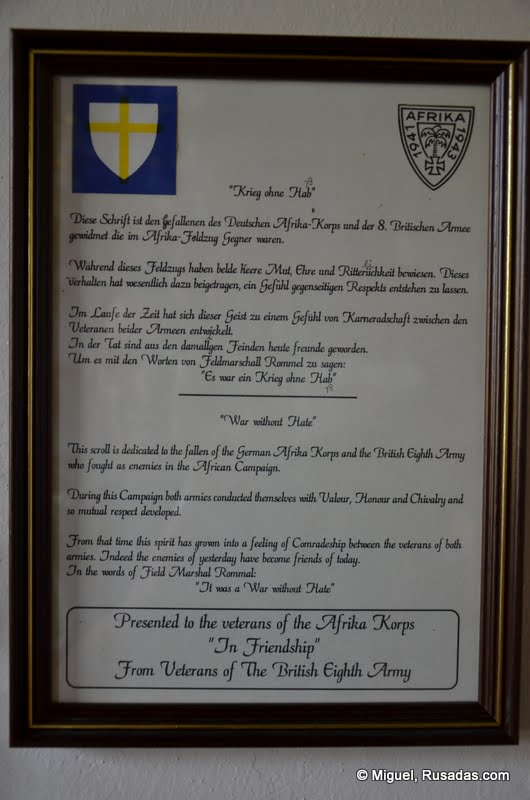 AFRIKA
1941
1943
"Krieg ohne Hab"
ß
Diese Schrift ist den Gefallenen des Deutschen Afrika-Korps und der 8. Britischen Armee
gewidmet die im Afrika-Foldzug Gegner waren.
Während dieses Feldzugs haben belde Heere Mut, Ehre und Ritterüchkeit bewiesen. Dieses
Verhalten hat wesentlich dazu beigetragen, ein Gefühl gegenseitigen Respekts entstehen zu lassen.
Im Laufe der Zeit hat sich dieser Geist zu einem Gefühl von Karneradschaft zwischen den
Veteranen beider Armeen entwickelt.
In der Tat sind aus den damallgen Feinden heute freunde geworden.
Um es mit den Worten von Feldmarschall Rommel zu sagen:
"Es war ein Krieg ohne Hab"
ß
"War without Hate"
This scroll is dedicated to the fallen of the German Afrika Korps and the British Eighth Army
who fought as enemies in the African Campaign.
During this Campaign both armies conducted themselves with Valour, Honour and Chivalry and
so mutual respect developed.
From that time this spirit has grown into a feeling of Comradeship between the veterans of both
armies. Indeed the enemies of yesterday have become friends of today.
In the words of Field Marshal Rommal:
"It was a War without Hate"
Presented to the veterans of the Afrika Korps
"In Friendship"
From Veterans of The British Eighth Army
© Miguel, Rusadas.com